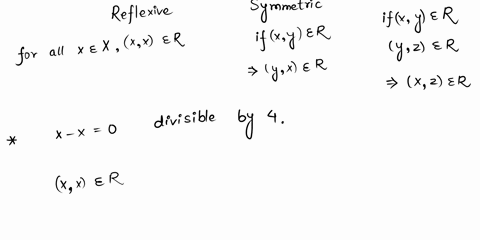 Reflexive
for all x ∈ X, (x,x) ∈ R
Symmetric
if (x,y) ∈ R
⇒ (y,x) ∈ R
if (x,y) ∈ R
(y,z) ∈ R
⇒ (x,z) ∈ R
* x - x = 0 divisible by 4.
(x,x) ∈ R